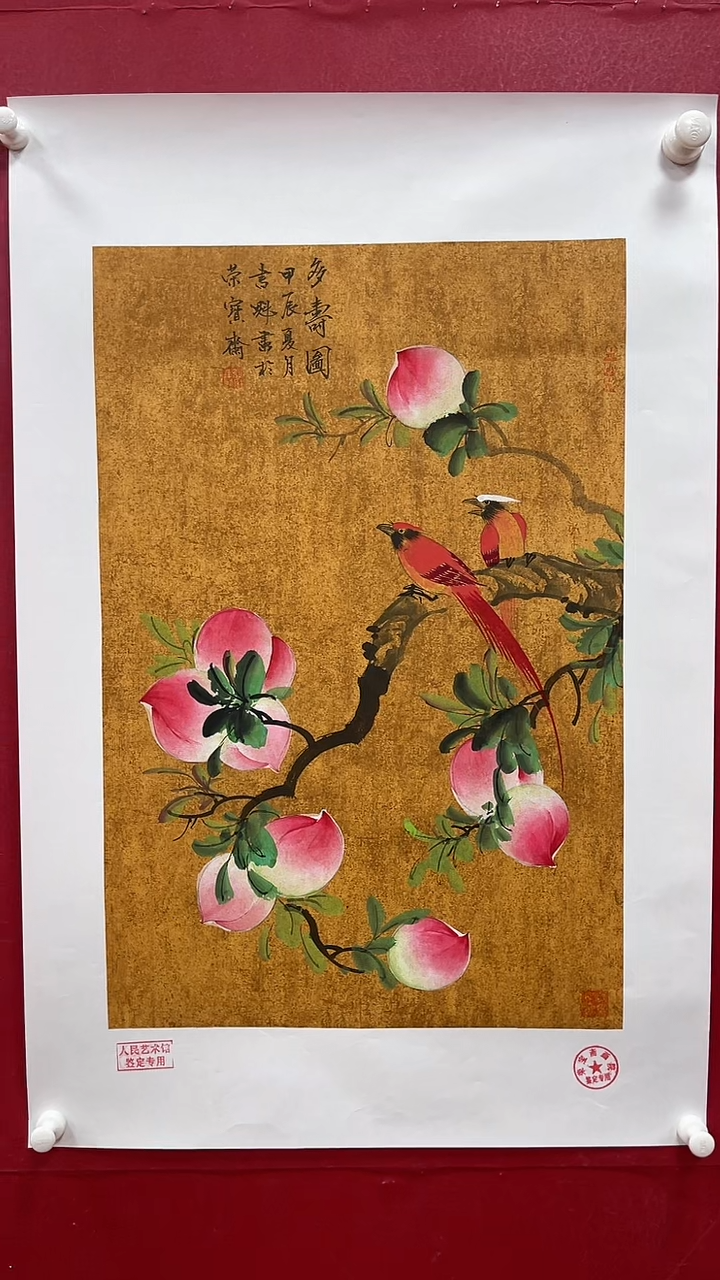 多壽圖
甲辰夏月
書魁畫於
榮寶齋
人民艺术馆
鉴定专用
鉴定专用